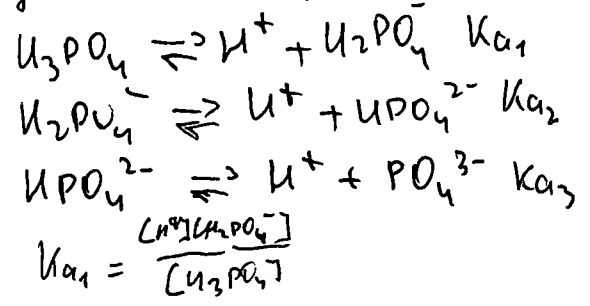 H₃PO₄ ⇌ H⁺ + H₂PO₄⁻ Ka₁
H₂PO₄⁻ ⇌ H⁺ + HPO₄²⁻ Ka₂
HPO₄²⁻ ⇌ H⁺ + PO₄³⁻ Ka₃
Ka₁ = [H⁺][H₂PO₄⁻] / [H₃PO₄]